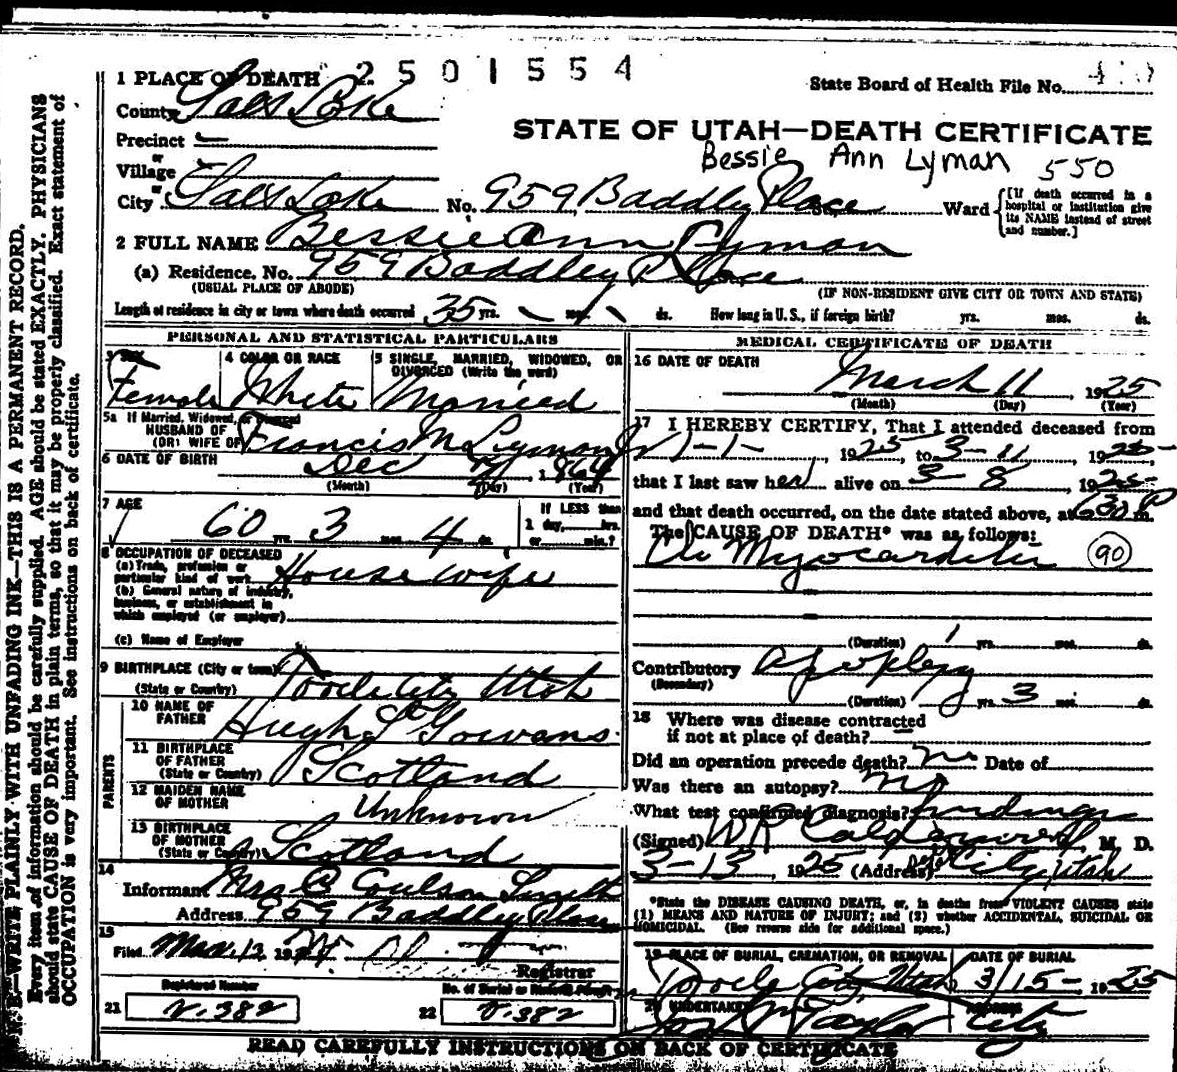 2501554
1 PLACE OF DEATH
State Board of Health File No.
County Salt Lake
Precinct
STATE OF UTAH—DEATH CERTIFICATE
or
Bessie Ann Lyman 550
Village
or
City Salt Lake No. 959 Baddley Place St. Ward
[If death occurred in a hospital or institution give its NAME instead of street and number.]
2 FULL NAME Bessie Ann Lyman
(a) Residence. No. 959 Baddley Place
(USUAL PLACE OF ABODE) (IF NON-RESIDENT GIVE CITY OR TOWN AND STATE)
Length of residence in city or town where death occurred 35 yrs. mos. ds. How long in U.S., if foreign birth? yrs. mos. ds.
PERSONAL AND STATISTICAL PARTICULARS
3 SEX 4 COLOR OR RACE 5 SINGLE, MARRIED, WIDOWED, OR
DIVORCED (Write the word)
Female White Married
5a If Married, Widowed, or Divorced
HUSBAND OF
(OR) WIFE OF Francis M Lyman Jr
6 DATE OF BIRTH Dec 7 1864
(Month) (Day) (Year)
7 AGE
If LESS than
60 yrs. 3 mos. 4 ds.
1 day, hrs.
or min.?
8 OCCUPATION OF DECEASED
(a) Trade, profession or
particular kind of work Housewife
(b) General nature of industry,
business, or establishment in
which employed (or employer)
(c) Name of Employer
9 BIRTHPLACE (City or town)
(State or Country) Tooele City Utah
PARENTS
10 NAME OF
FATHER Hugh S Gowans
11 BIRTHPLACE
OF FATHER
(State or Country) Scotland
12 MAIDEN NAME
OF MOTHER Unknown
13 BIRTHPLACE
OF MOTHER
(State or Country) Scotland
14
Informant Mrs B Coulson Smith
Address 959 Baddley Place
15
Filed Mar. 13 192
Registrar
Registered Number
21 V.382
No. of Burial or Removal Permit
22 V.382
MEDICAL CERTIFICATE OF DEATH
16 DATE OF DEATH
March 11, 1925
(Month) (Day) (Year)
17 I HEREBY CERTIFY, That I attended deceased from
1-1-, 1925, to 3-11, 1925
that I last saw her alive on 3-8, 1925
and that death occurred, on the date stated above, at 630 P m.
The CAUSE OF DEATH* was as follows:
Myocarditis 90
(Duration) 1 yrs. mos. ds.
Contributory Apoplexy
(Secondary)
(Duration) yrs. 3 mos. ds.
18 Where was disease contracted
if not at place of death?
Did an operation precede death? no Date of
Was there an autopsy? no
What test confirmed diagnosis? findings
(Signed) , M. D.
3-13, 1925 (Address) City, Utah
*State the DISEASE CAUSING DEATH, or, in deaths from VIOLENT CAUSES state
(1) MEANS AND NATURE OF INJURY; and (2) whether ACCIDENTAL, SUICIDAL OR
HOMICIDAL. (See reverse side for additional space.)
19 PLACE OF BURIAL, CREMATION, OR REMOVAL DATE OF BURIAL
Tooele City, Utah 3/15-1925
20 UNDERTAKER ADDRESS
Taylor City
READ CAREFULLY INSTRUCTIONS ON BACK OF CERTIFICATE
N. B.—WRITE PLAINLY WITH UNFADING INK—THIS IS A PERMANENT RECORD.
Every item of information should be carefully supplied. AGE should be stated EXACTLY. PHYSICIANS
should state CAUSE OF DEATH in plain terms, so that it may be properly classified. Exact statement of
OCCUPATION is very important. See instructions on back of certificate.